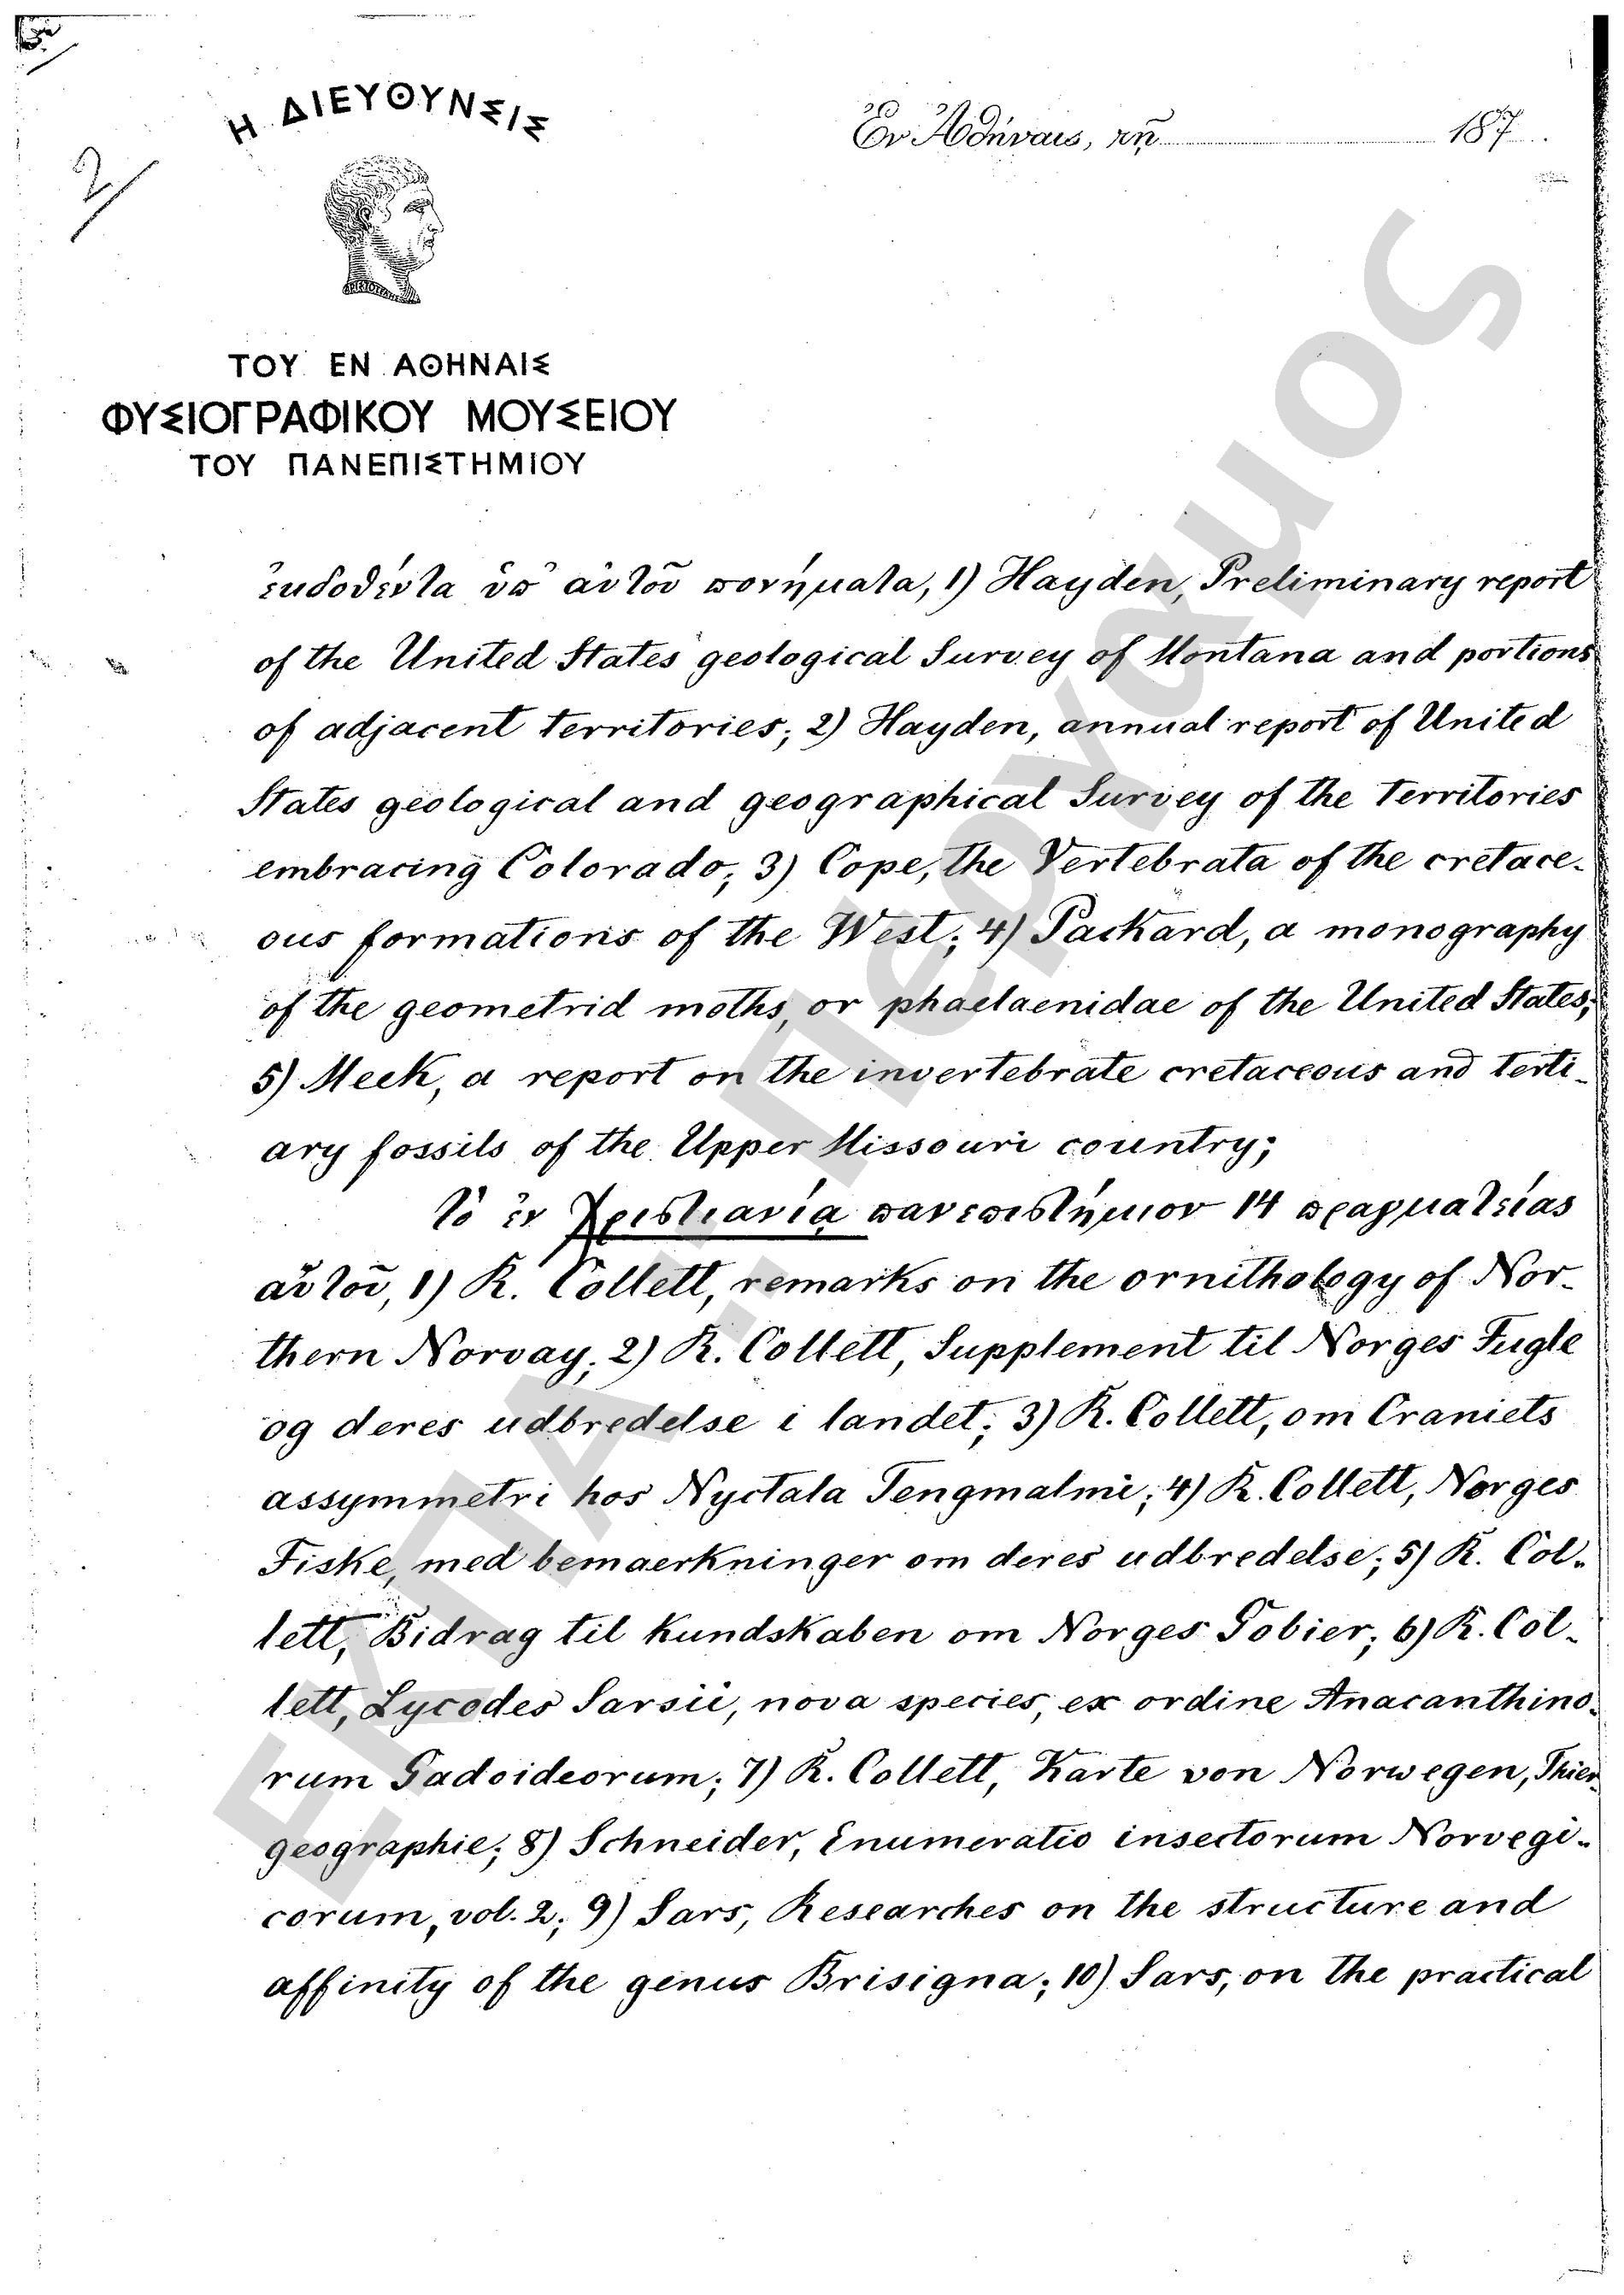 2/
Η ΔΙΕΥΘΥΝΣΙΣ
Ἐν Ἀθήναις, τῇ 187 .
ΤΟΥ ΕΝ ΑΘΗΝΑΙΣ
ΦΥΣΙΟΓΡΑΦΙΚΟΥ ΜΟΥΣΕΙΟΥ
ΤΟΥ ΠΑΝΕΠΙΣΤΗΜΙΟΥ
ἐκδοθέντα ὑπ' αὐτοῦ πονήματα, 1) Hayden, Preliminary report
of the United States geological Survey of Montana and portions
of adjacent territories; 2) Hayden, annual report of United
States geological and geographical Survey of the Territories
embracing Colorado; 3) Cope, the Vertebrata of the cretace-
ous formations of the West; 4) Packard, a monography
of the geometrid moths, or phaelaenidae of the United States;
5) Meek, a report on the invertebrate cretaceous and terti-
ary fossils of the Upper Missouri country;
τὸ ἐν Χριστιανίᾳ πανεπιστήμιον 14 πραγματείας
αὑτοῦ, 1) R. Collett, remarks on the ornithology of Nor-
thern Norvay; 2) R. Collett, Supplement til Norges Fugle
og deres udbredelse i landet; 3) R. Collett, om Craniets
assymmetri hos Nyctala Tengmalmi; 4) R. Collett, Norges
Fiske, med bemaerkninger om deres udbredelse; 5) R. Col-
lett, Bidrag til kundskaben om Norges Gobier; 6) R. Col-
lett, Lycodes Sarsii, nova species, ex ordine Anacanthino-
rum Gadoideorum; 7) R. Collett, Karte von Norwegen, Thier-
geographie; 8) Schneider, Enumeratio insectorum Norvegi-
corum, vol. 2; 9) Sars, Researches on the structure and
affinity of the genus Brisigna; 10) Sars, on the practical
ΕΚΠΑ - Πέργαμος